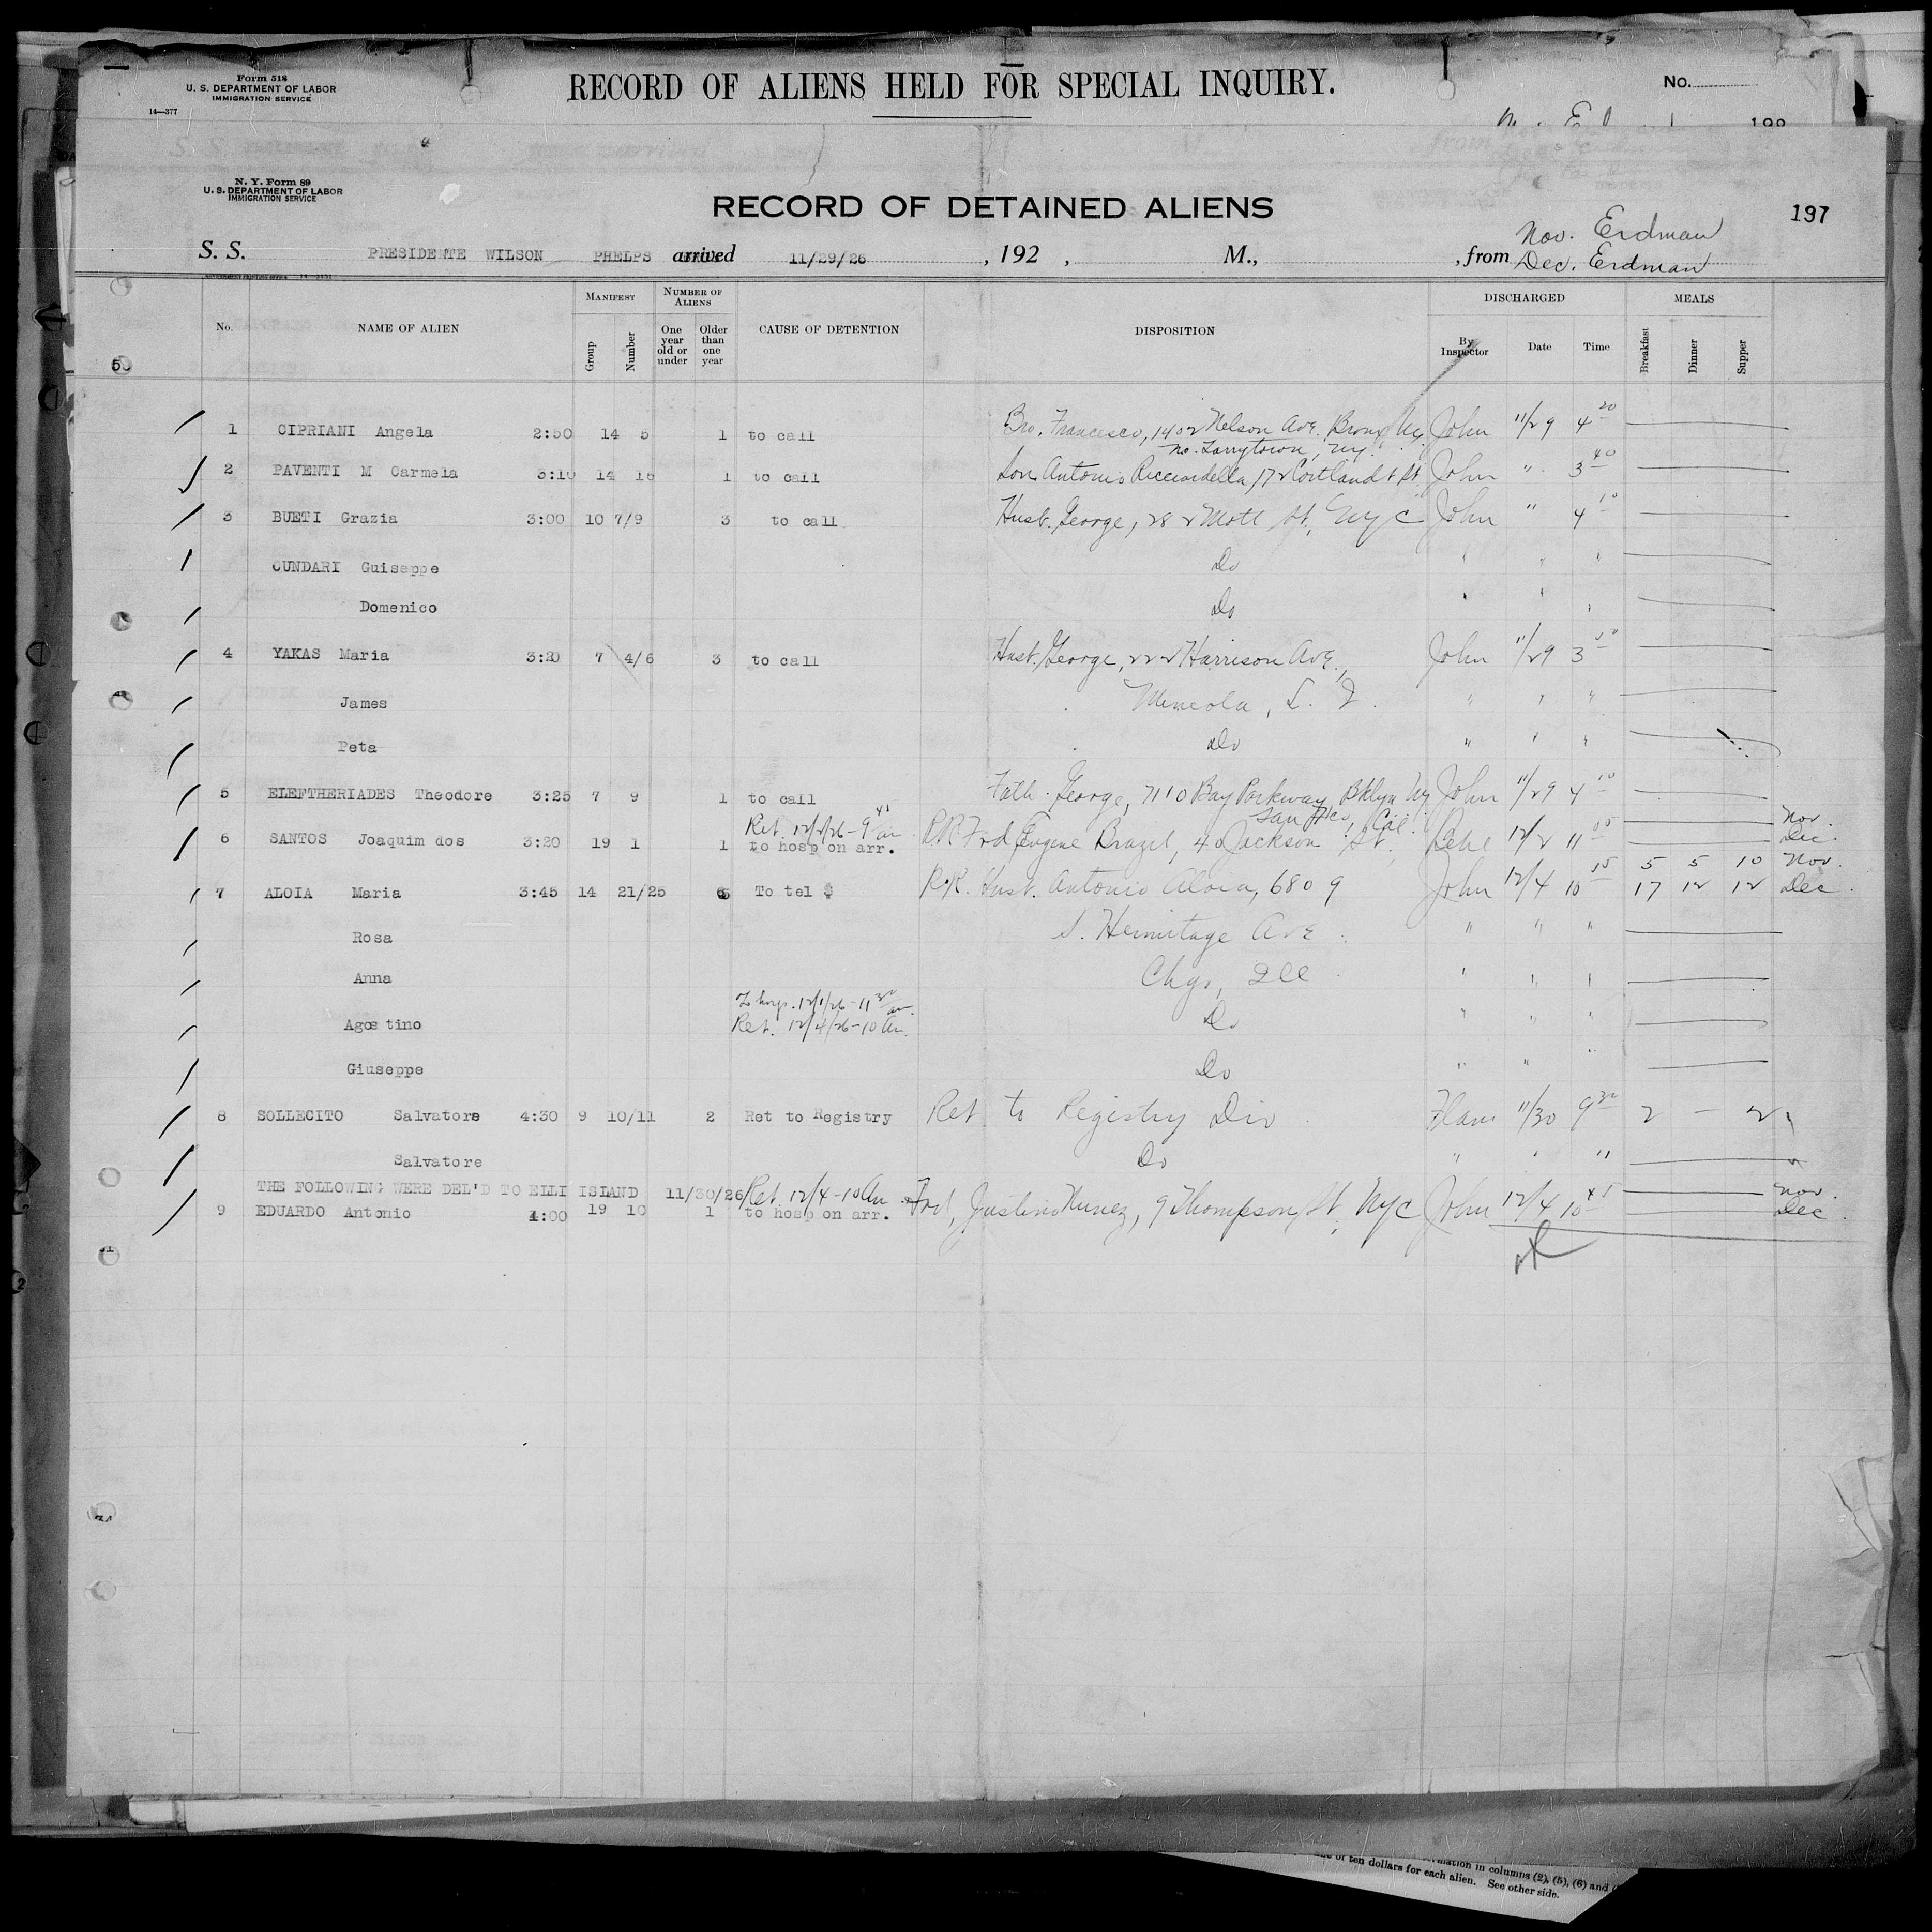 Form 518
U. S. DEPARTMENT OF LABOR
IMMIGRATION SERVICE
14—377
RECORD OF ALIENS HELD FOR SPECIAL INQUIRY.
No.
N. Y. Form 89
U. S. DEPARTMENT OF LABOR
IMMIGRATION SERVICE
RECORD OF DETAINED ALIENS
197
Nov. Erdman
S. S. PRESIDENTE WILSON PHELPS arrived 11/29/26, 192 , M., , from Dec. Erdman
No. NAME OF ALIEN MANIFEST Group Number NUMBER OF ALIENS One year old or under Older than one year CAUSE OF DETENTION DISPOSITION DISCHARGED By Inspector Date Time MEALS Breakfast Dinner Supper
1 CIPRIANI Angela 2:50 14 5 1 to call Bro. Francesco, 1402 Nelson Ave. Bronx Ny John 11/29 4 20
No. Tarrytown, Ny.
2 PAVENTI M Carmela 3:10 14 16 1 to call Son Antonio Ricciardella, 172 Cortlandt St. John " 3 40
3 BUETI Grazia 3:00 10 7/9 3 to call Husb. George, 282 Mott St, NYC John " 4 10
CUNDARI Guiseppe Do " " "
Domenico Do " " "
4 YAKAS Maria 3:20 7 4/6 3 to call Husb. George, 222 Harrison Ave., John 11/29 3 50
James Mineola, L. I. " " "
Peta Do " " "
5 ELEFTHERIADES Theodore 3:25 7 9 1 to call Fath. George, 7110 Bay Parkway, Bklyn Ny John 11/29 4 10
Ret. 12/2/26 - 9 45 am San Fco, Cal. Nov.
6 SANTOS Joaquim dos 3:20 19 1 1 to hosp on arr. R.R. Frd Eugene Brazil, 40 Jackson St. 12/2 11 05 Dec.
5 5 10 Nov.
7 ALOIA Maria 3:45 14 21/25 5 To tel $ R.R. Husb. Antonio Aloia, 6809 John 12/4 10 15 17 12 12 Dec.
Rosa S. Hermitage Ave. " " "
Anna Chgo, Ill " " "
To hosp. 12/1/26 - 11 30 am.
Agostino Ret. 12/4/26 - 10 Am. Do " " "
Giuseppe Do " " "
8 SOLLECITO Salvatore 4:30 9 10/11 2 Ret to Registry Ret to Registry Div Flam 11/30 9 30 2 — 2
Salvatore Do " " "
THE FOLLOWING WERE DEL'D TO ELLI ISLAND 11/30/26 Ret. 12/4 - 10 Am Nov.
9 EDUARDO Antonio 4:00 19 10 1 to hosp on arr. Frd, Justino Nunez, 9 Thompson St, NYC John 12/4 10 45 Dec.
ok
ormation in columns (2), (5), (6) and
of ten dollars for each alien. See other side.